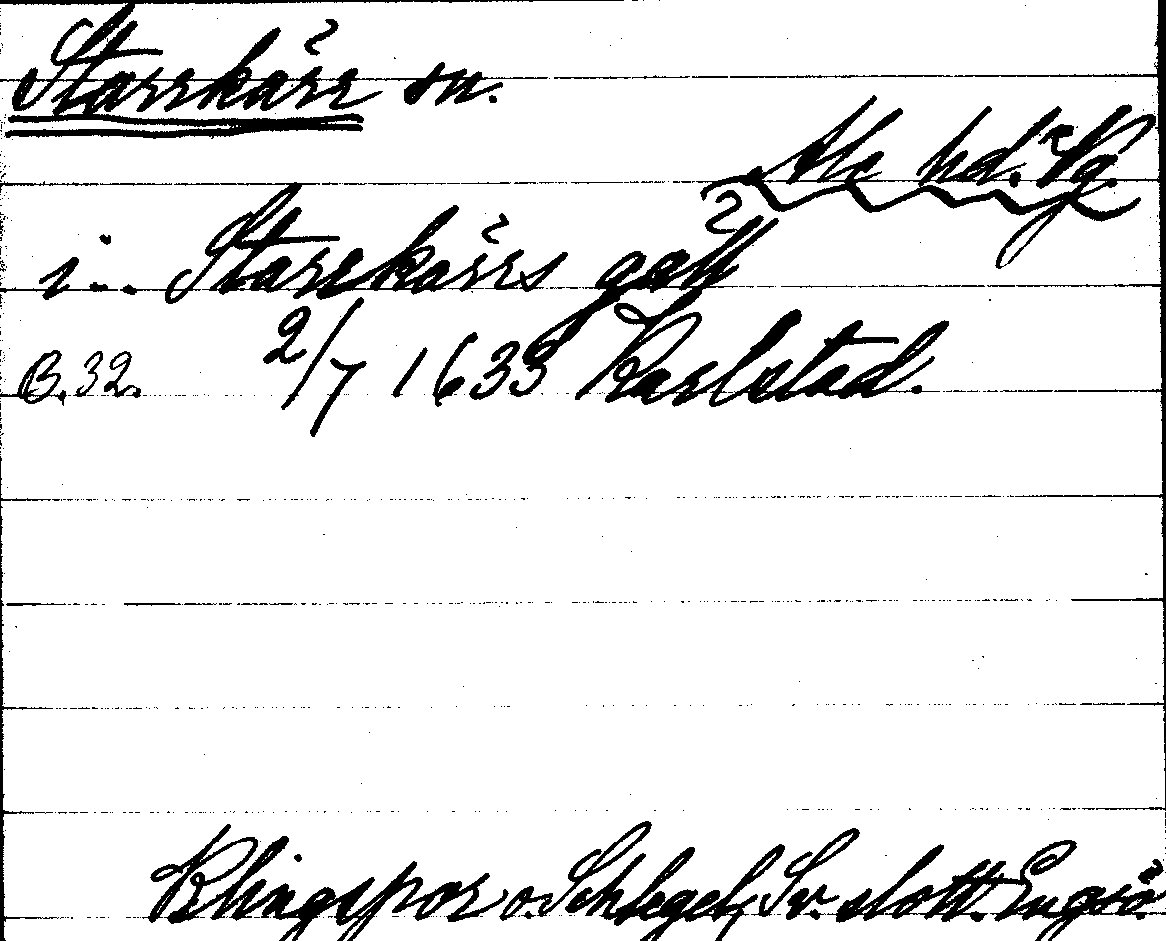 Starrkärr sn.
Ale hd. Vg.
i... Starrkärrs gäll
B. 32. 2/7 1633 Karlstad.
Klingspor o. Schlegel, Sv. slott. Engsö.